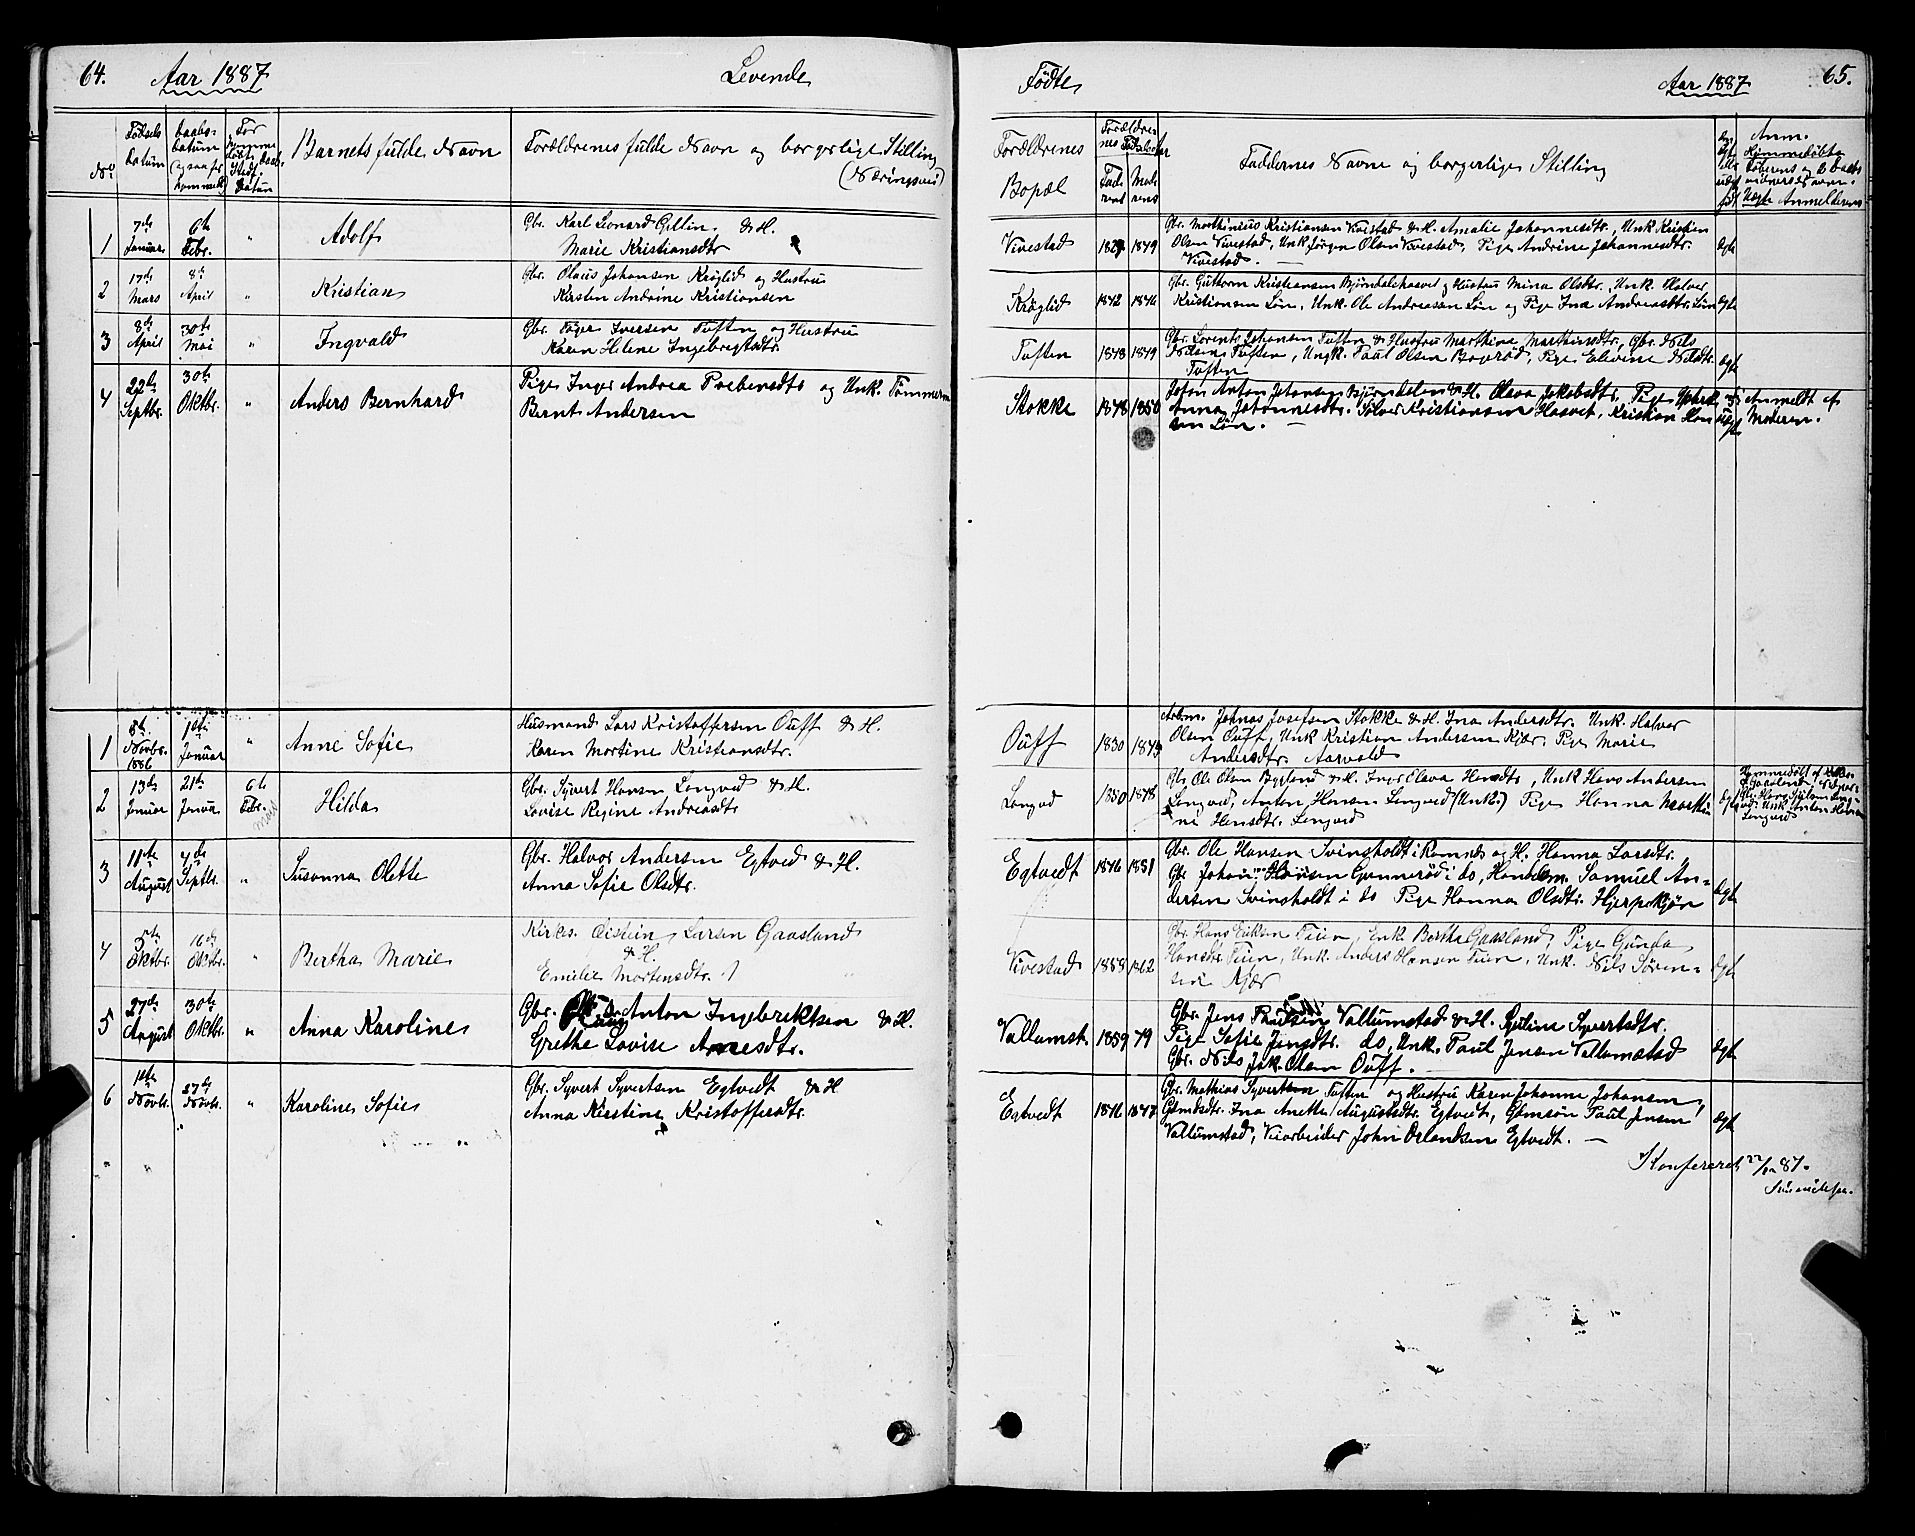 64. Aar 1887 Levende
No
Fødsels Datum
Daabs-Datum
Barnets fulde Navn
Forældrenes fulde Navn og borgerlige Stilling
(Næringsvei)
1 7de Januar 6te Febr. " Adolf
Gbr. Karl Leonard Gillin & H.
Marie Kristiansdtr
2 17de Mars 8de April " Kristian
Gbr. Olaus Johansen Krøglid og Hustru
Kirsten Andrine Kristiansen
3 8de April 30te Mai " Ingvald
Gbr. Inger Iversen Tuften og Hustru
Karen Helene Ingebregtsdtr.
4 22de Septbr. 30te Oktbr. " Anders Bernhard
Pige Inger Andrea Prebensdtr og Unk. Tømmerm
Bernt Andersen
1 8de Novbr. 1886 1ste Januar " Anne Sofie
Husmand Lars Kristoffersen Ouff & H.
Karen Martine Kristiansdtr.
2 13de Januar 21de Januar 6te Febr. Hilda
Gbr. Syvert Hansen Lengved & H.
Lovise Regine Andreasdtr
3 11te August 4de Septbr. " Susanna Olette
Gbr. Halvor Andersen Egtved & H.
Anna Sofie Olsdtr.
4 5te Oktbr. 16de Oktbr. " Bertha Marie
Kirkes. Eistein Larsen Gaasland
& H.
Emilie Mortensdtr.
5 27de August 30te Oktbr. " Anna Karoline
Gbr. Anton Ingebriktsen & H.
Grethe Lovise Arnesdtr.
6 1ste Novbr. 27de Novbr. " Karoline Sofie
Gbr. Syvert Syvertsen Egtvedt & H
Anna Kirstine Kristoffersdtr.
Fødte Aar 1887 65.
Forældrenes
Bopæl
Forældrenes Fødselsaar
Faderens Moderens
Faddernes Navne og borgerlige Stilling
Anm.
Hjemmedøbte
Døberens og Daabs
vidners Navne.
Uægte Anmelderens
Vivestad 1849
Gbr. Marthinius Kristiansen Vivestad & H. Amalie Johannesdtr, Unk Kristian
Olsen Vivestad, Unk Jørgen Olsen Vivestad, Pige Andrine Johannesdtr.
Vivestad. — Ægt
Krøglid 1842 1846
Gbr. Guttorm Kristiansen Bjørndalshaavet og Hustru Mina Olsdtr., Unk. Halvor
Kristiansen Løn, Unk. Ole Andreassen Løn og Pige Ina Andreasdtr. Løn Ægt
Tuften 1848 1849
Gbr. Lorents Johansen Tuften & Hustru Marthine Marthinsdtr, Gbr. Nils
Nilsen Tuften, Ungk. Paul Olsen Bogerød, Pige Elevine Nilsdtr.
Tuften Ægt
Stokke 1848 1850
John Anton Johansen Bjørndalen & H. Olava Jakobsdtr, Pige
Anna Johannesdtr. Sølver Kristiansen Hasvet, Kristian Han
sen Løn. — uægt
Anmeldt af
Moderen.
Ouff 1830 1849
Arbm. Johnas Josefsen Stokke & H. Ina Andersdtr. Unk. Halvor
Olsen Ouff, Unk Kristian Andersen Kjær, Pige Marie
Andersdtr. Aarvold
Lengved 1850 1848
Gbr Ole Olsen Bygeland & H. Inger Olava Hansdtr, Unk Hans Andersen
Lengved, Anton Hansen Lengved (Unk.) Pige Hanna Marthi
ne Hansdtr. Lengved Ægt
Egtvedt 1846 1851
Gbr. Ole Hansen Svinsholdt i Ramnes og H. Hanna Larsdtr.,
Gbr Johan Hansen Gunnerød i do, Handelsm. Samuel An=
dersen Svinsholdt i do Pige Hanna Olsdtr. Hjerpekjøn Ægt
Vivestad 1858 1862
Gbr. Hans Eriksen Feien, Enk. Bertha Gaasland, Pige Gunda
Hansdtr. Feien, Unk. Anders Hansen Feien, Unk. Nils Søren=
sen Kjær Ægt
Vallumst. 1859 79
Gbr. Jens Paulsen Vallumstad & H. Syverine Syvertsdtr.
Pige Sofie Jensdtr. do, Unk. Paul Jensen Vallumstad
Gbr. Nils Jak. Olsen Ouff. — Ægt
Egtvedt 1846 1847
Gbr. Mathias Syvertsen Tuften og Hustru Karen Johanne Johansen,
Gbmdsdtr. Ina Anette Augustsdtr. Egtvedt, Gbmsøn Paul Jensen
Vallumstad, Veiarbeider John Orlandsen Egtvedt. — Ægt
Konfereret 22/12 87.